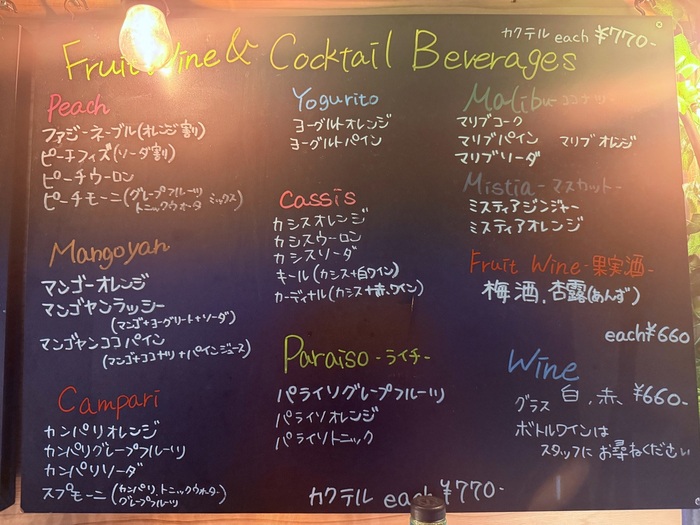 カクテル each ¥770-
Fruit Wine & Cocktail Beverages
Peach
ファジーネーブル(オレンジ割)
ピーチフィズ(ソーダ割)
ピーチウーロン
ピーチモーニ(グレープフルーツ
トニックウォータ ミックス)
Mangoyan
マンゴーオレンジ
マンゴヤンラッシー
(マンゴ+ヨーグリート+ソーダ)
マンゴヤンココパイン
(マンゴ+ココナツ+パインジュース)
Campari
カンパリオレンジ
カンパリグレープフルーツ
カンパリソーダ
スプモーニ(カンパリ、トニックウォーター
グレープフルーツ)
Yogurito
ヨーグルトオレンジ
ヨーグルトパイン
Cassis
カシスオレンジ
カシスウーロン
カシスソーダ
キール(カシス+白ワイン)
カーディナル(カシス+赤ワイン)
Paraiso-ライチ-
パライソグレープフルーツ
パライソオレンジ
パライソトニック
カクテル each ¥770-
Malibu-ココナツ
マリブコーク
マリブパイン マリブオレンジ
マリブソーダ
Mistia-マスカット-
ミスティアジンジャー
ミスティアオレンジ
Fruit Wine-果実酒-
梅酒、杏露(あんず)
each¥660
Wine
グラス 白、赤、¥660-
ボトルワインは
スタッフにお尋ねください